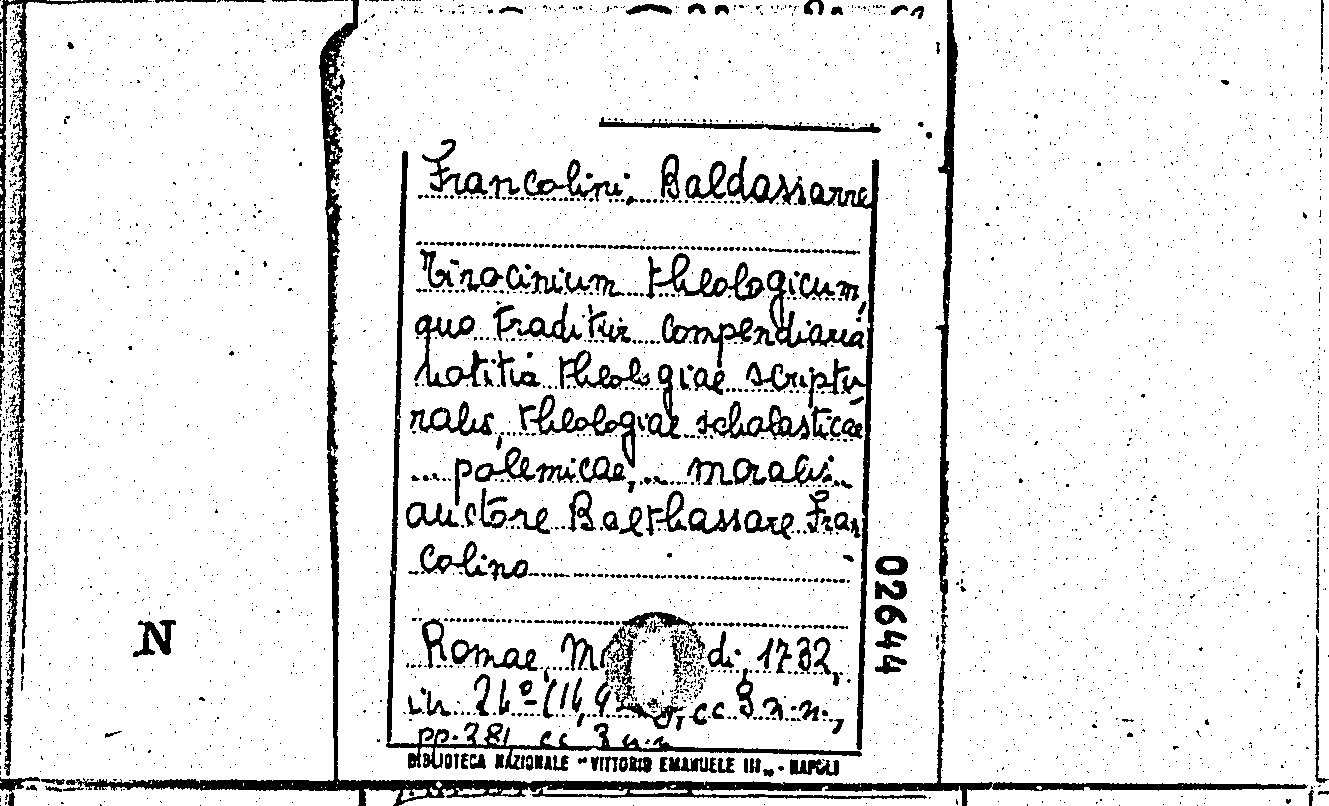 Francolini, Baldassarre
Tirocinium theologicum,
quo traditur compendiaria
notitia theologiae scriptu
ralis, theologiae scholasticae
... polemicae, ... moralis ...
auctore Balthassare Fran
colino
Romae, di, 1732,
in 24º cc 3 n.n.,
pp. 381, cc 3 n.n.
BIBLIOTECA NAZIONALE "VITTORIO EMANUELE III" - NAPOLI
02644
N